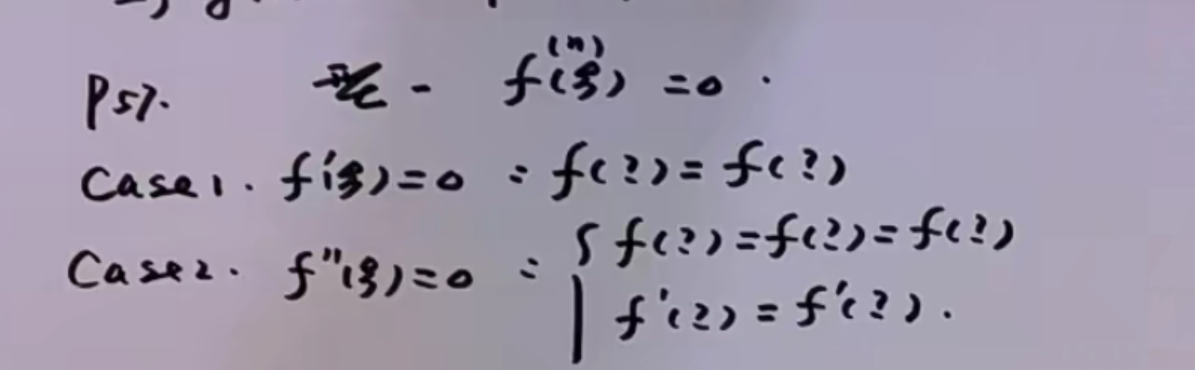 P57.
- f⁽ⁿ⁾(ξ) = 0 .
Case1. f'(ξ)=0 : f(?) = f(?)
Case2. f"(ξ)=0 : { f(?) = f(?) = f(?)
f'(?) = f'(?).